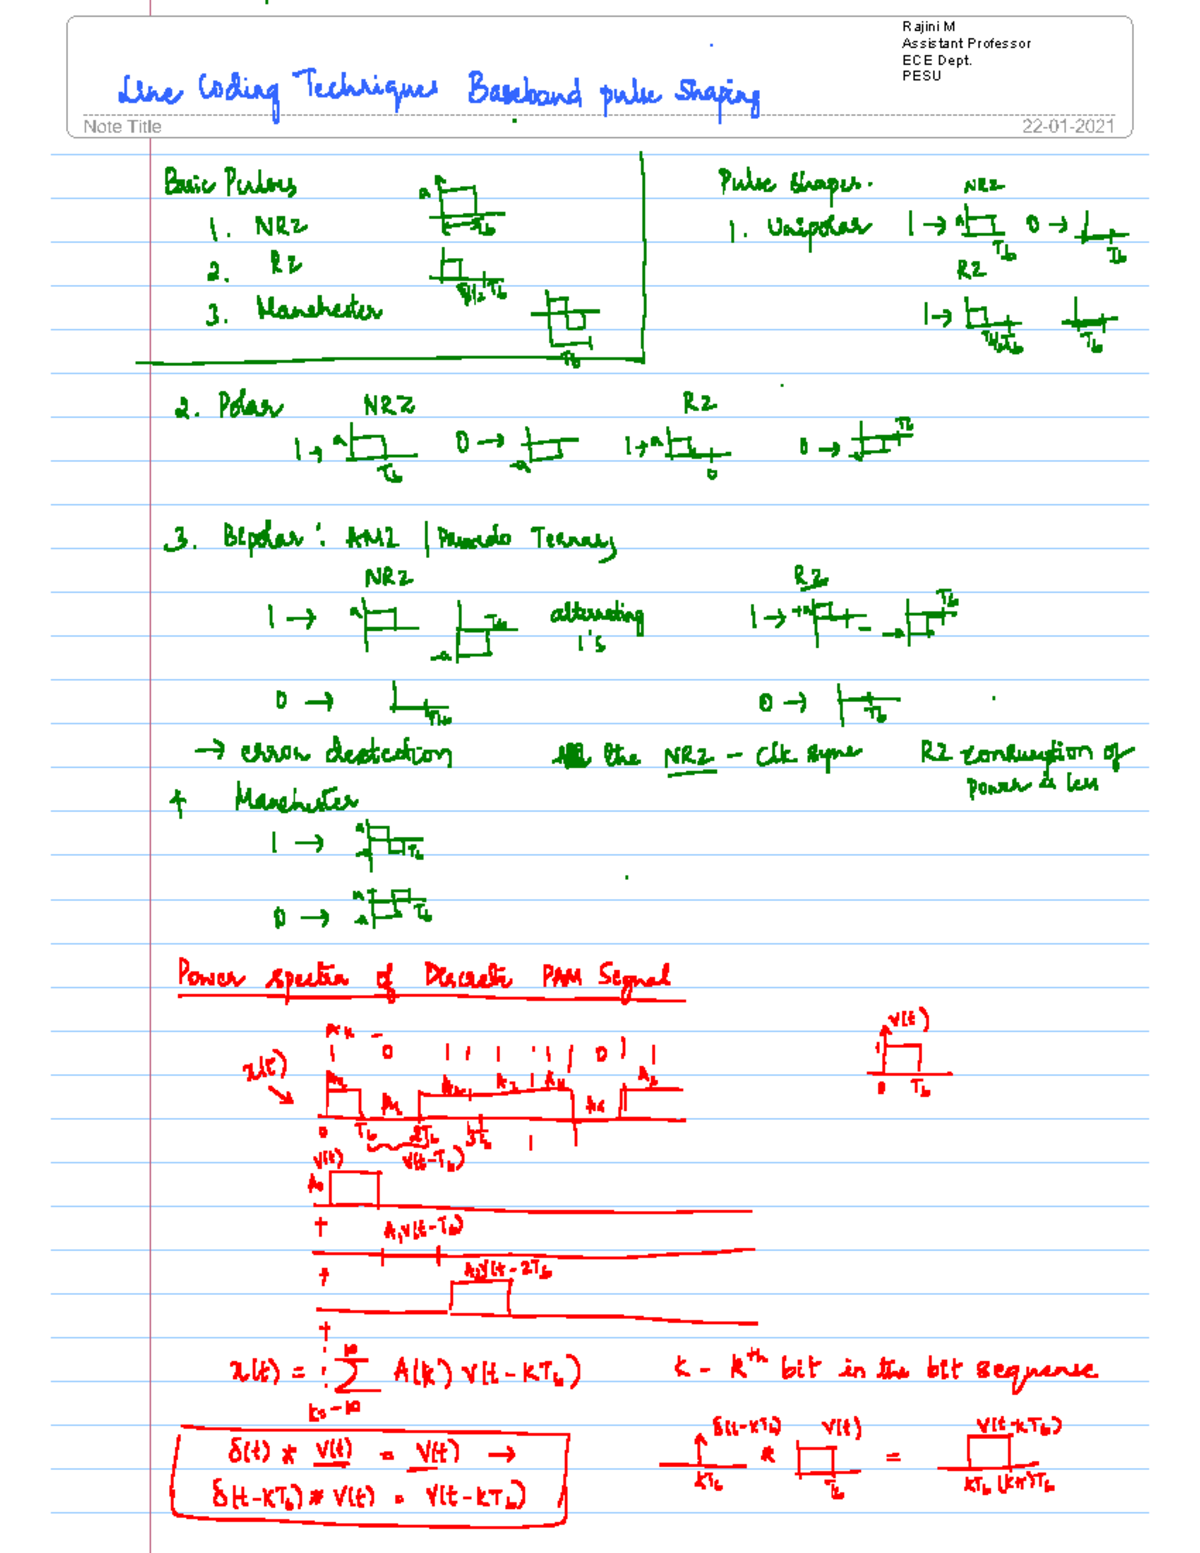 Rajini M
Assistant Professor
ECE Dept.
PESU
Line Coding Techniques Baseband pulse shaping
Note Title
22-01-2021
Basic Pulses
1. NRZ
a
Tb
2. RZ
Tb/2 Tb
3. Manchester
Tb
Pulse shapes.
NRZ
1. Unipolar 1 → a Tb 0 → Tb
RZ
1 → Tb/2 Tb Tb
2. Polar NRZ RZ
1 → a Tb 0 → -a 1 → a 0 → Tb
3. Bipolar : AMI | Pseudo Ternary
NRZ RZ
1 → a -a alternating 1's 1 → +a Tb
0 → Tb 0 → Tb
→ error detection the NRZ - Clk sync RZ consumption of
power is less
4 Manchester
1 → a Tb
0 → a -a Tb
Power spectra of Discrete PAM Signal
Ak
1 0 1 1 1 1 1 0 1 1
x(t)
0 Tb 2Tb 3Tb
V(t)
1
0 Tb
V(t) V(t-Tb)
A0
+ A1V(t-Tb)
+ V(t-2Tb
+
x(t) = ∑ A(k) V(t-kTb) k - kth bit in the bit sequence
k=-∞
δ(t) * V(t) = V(t) →
δ(t-kTb) * V(t) = V(t-kTb)
δ(t-kTb) V(t) V(t-kTb)
* =
kTb Tb kTb (k+1)Tb